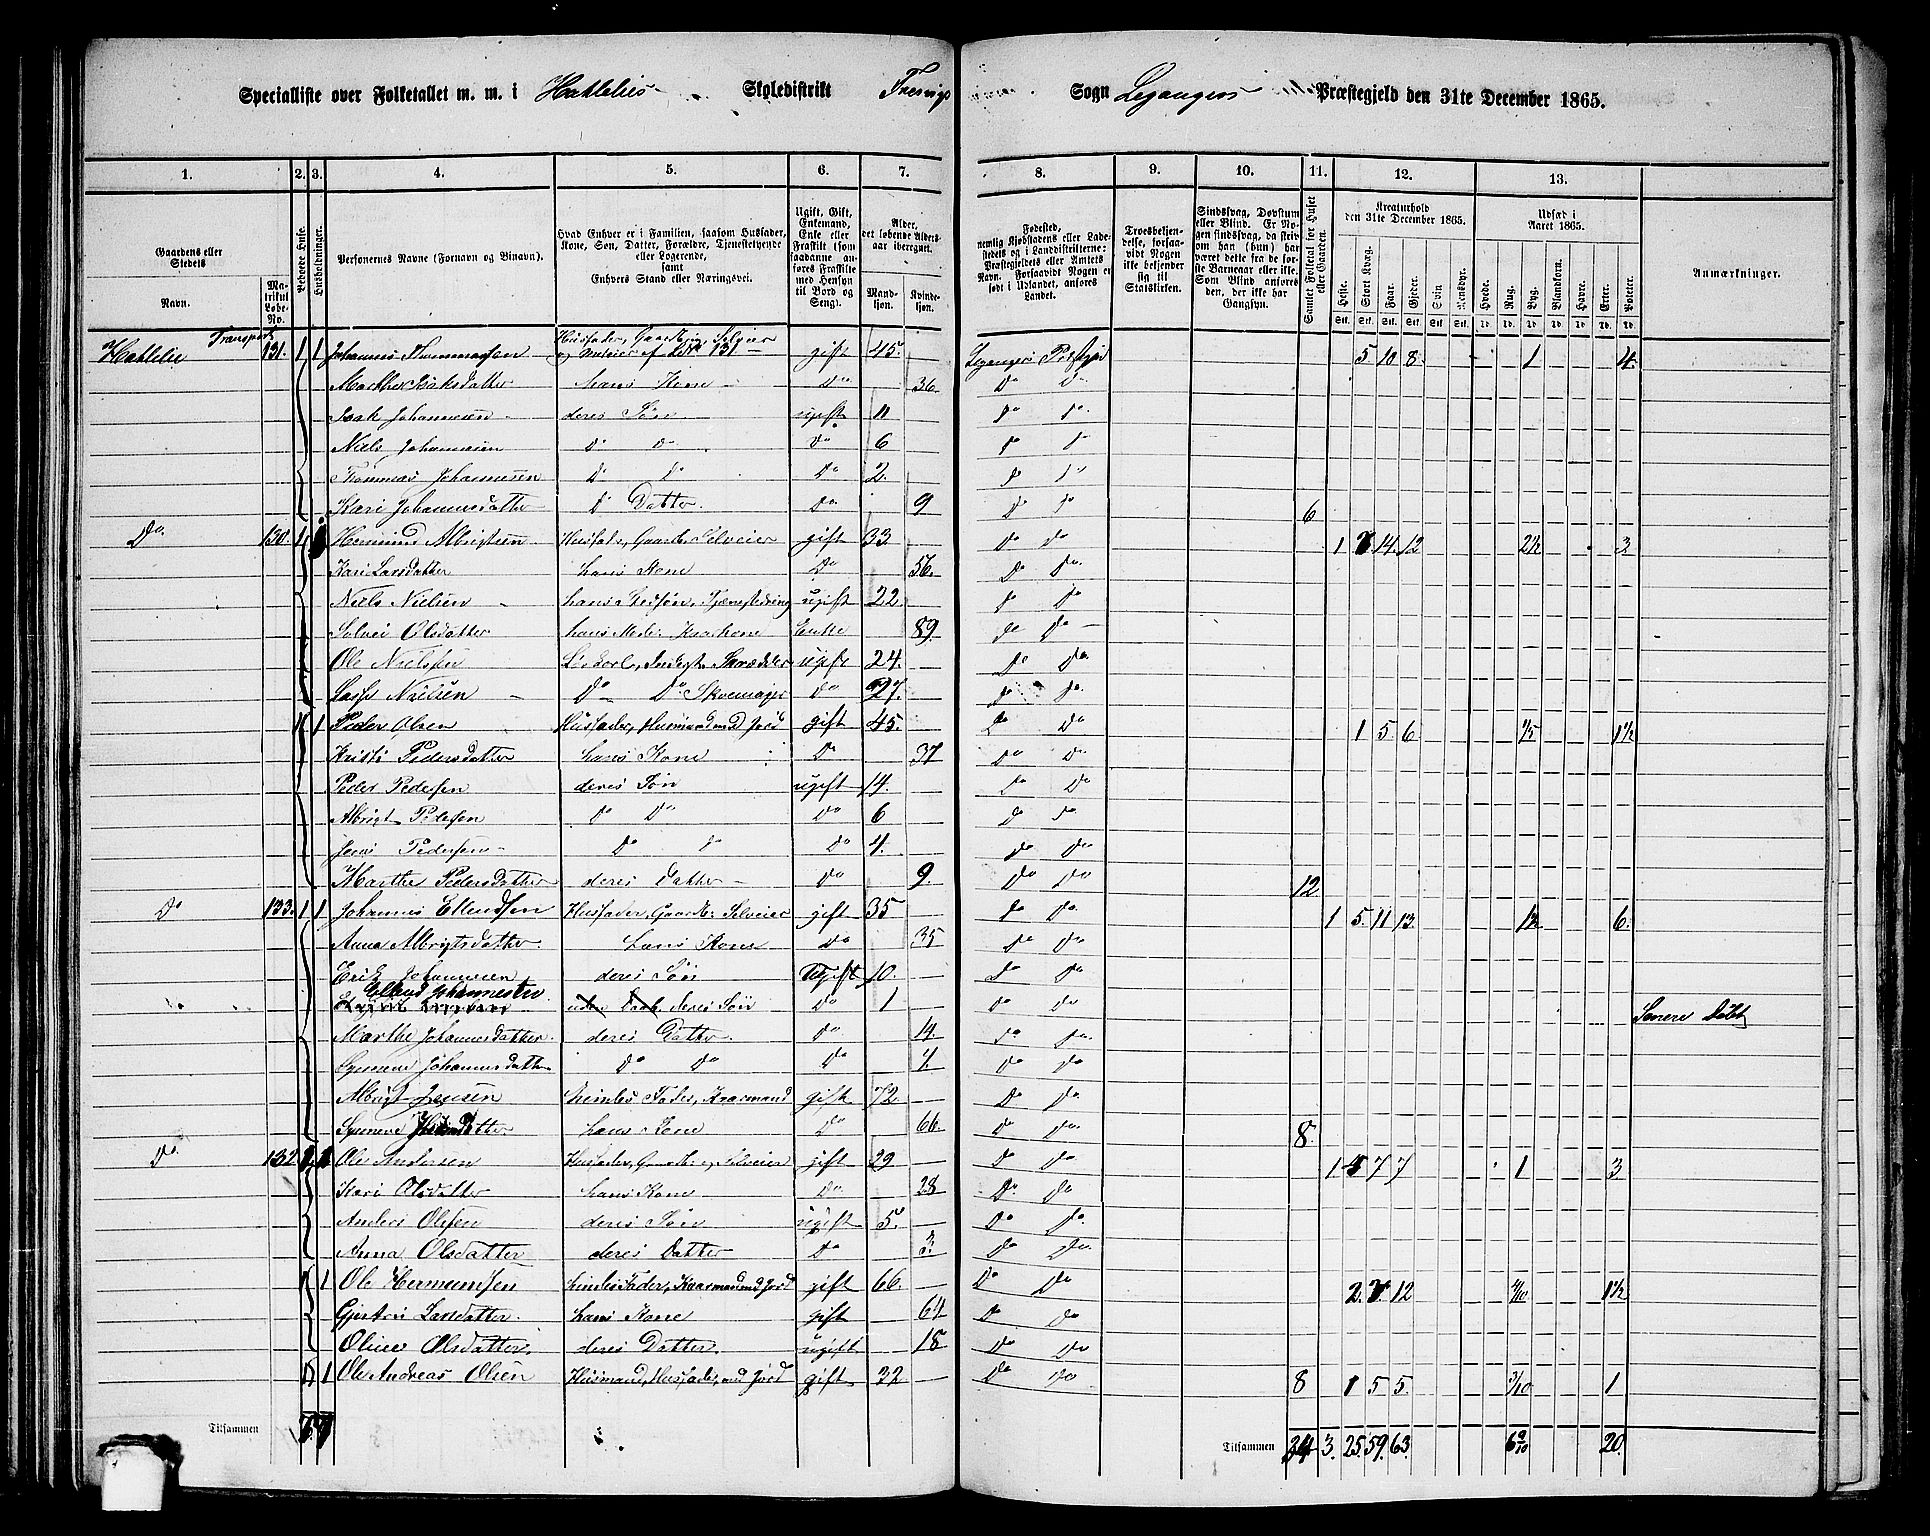 Specialliste over Folketallet m. m. i Hatlelies Skoledistrikt Fresvigs Sogn Leganger Præstegjeld den 31te December 1865.
1. 2. 3. 4. 5. 6. 7. 8. 9. 10. 11. 12. 13.
Gaardens eller Stedets Navn. Matrikul Løbe-No. Beboede Huse. Husholdninger. Personernes Navne (Fornavn og Binavn). Hvad Enhver er i Familien, saasom Husfader, Kone, Søn, Datter, Forældre, Tjenestetyende eller Logerende, samt Enhvers Stand eller Næringsvei. Ugift, Gift, Enkemand, Enke eller Fraskilt (som saadanne anføres Fraskilte med Hensyn til Bord og Seng). Alder, det løbende Aldersaar iberegnet. Mandkjøn. Kvindekjøn.
Fødested, nemlig Kjøbstadens eller Ladestedets og i Landdistrikterne: Præstegjeldets eller Amtets Navn. Forsaavidt Nogen er født i Udlandet, anføres Landet. Troesbekjendelse, forsaavidt Nogen ikke bekjender sig til Statskirken. Sindssvag, Døvstum eller Blind. Er Nogen sindssvag, da skrives om han (hun) har været dette fra de første Barneaar eller ikke. Som Blind anføres den, der ikke har Gangsyn. Samlet Folketal for Huset eller Gaarden. Kreaturhold den 31te December 1865. Udsæd i Aaret 1865. Anmærkninger.
Heste. Stort Kvæg. Faar. Gjeder. Svin Rensdyr. Hvede. Rug. Byg. Blandkorn. Havre. Erter. Poteter.
Transport
Hatlelie 131. 1 1 Johannes Thommassen Husfader, Gaardbr. Selveier og gift 45. Leganger Præstgjd 5 10 8 1 4.
Marthe datter hans Kone Do 36 Do Do
Isak Johannesen deres Søn ugift 11 Do Do
Niels Johannesen Do Do Do 6 Do Do
Thommas Johannesen Do Do Do 2. Do Do
Kari Johannesdatter Do Datter. Do 9 Do Do 6
Do 130. 1 Hermund Albrigtsen Husfader, Gaardb. Selveier gift 33 Do Do 1 7 14. 12 2½ 3
Kari Larsdatter hans Kone Do 56. Do Do
Niels Nielsen hans Stedsøn, ugift 22. Do Do
Solvei Olsdatter hans Enke 89 Do Do
Ole Nielsen ugift 24. Do Do
Lasse Nielsen Do Do Skomager Do 27. Do Do
1 1 Peder Olsen Husfader, Husmand med Jord gift 45. Do Do 1 5 6 1½
Kristi Pedersdatter hans Kone Do 37 Do Do
Peder Pedersen deres Søn ugift 14. Do Do
Albrigt Pedersen Do Do Do 6 Do Do
Jens Pedersen Do Do Do 4. Do Do
Marthe Pedersdatter deres Datter Do 9. Do Do 12
Do 133. 1 1 Johannes Ellendsen Husfader, Gaardb: Selveier gift 35 Do Do 1 5. 11 13. 1½ 6.
Anna Albrigtsdatter hans Kone Do 35 Do Do
Erik Johannesen deres Søn Ugift 10. Do Do
Ellend Johannesen deres Søn Do 1 Do Do Senere Døbt
Marthe Johannesdatter deres Datter. Do 14. Do Do
Johannesdatter Do Do Do Do Do
Albrigt Jensen Fader, Kaarmand gift 72 Do Do
Synneve datter hans Kone Do 66. Do Do 8.
Do 132. Ole Andersen Husfader, Gaardb: og Selveier gift 29 Do Do 1. 7 7 1 3
Kari Olsdatter hans Kone Do 28 Do Do
Anders Olsen deres Søn ugift 5. Do Do
Anna Olsdatter deres Datter Do 3. Do Do
1 Ole Hermundsen Fader, Kaarmand med Jord gift 66. Do Do 2. 12 1½
Gjertri Larsdatter hans Kone gift 64 Do Do
Oline Olsdatter. deres Datter ugift 18 Do Do
1 Ole Andreas Olsen Husmand, Husfader, med Jord gift 32 Do Do 8 1 5 5. 3/10 1
Tilsammen 7
Tilsammen 34 3. 25. 59. 63 6 9/10 20.